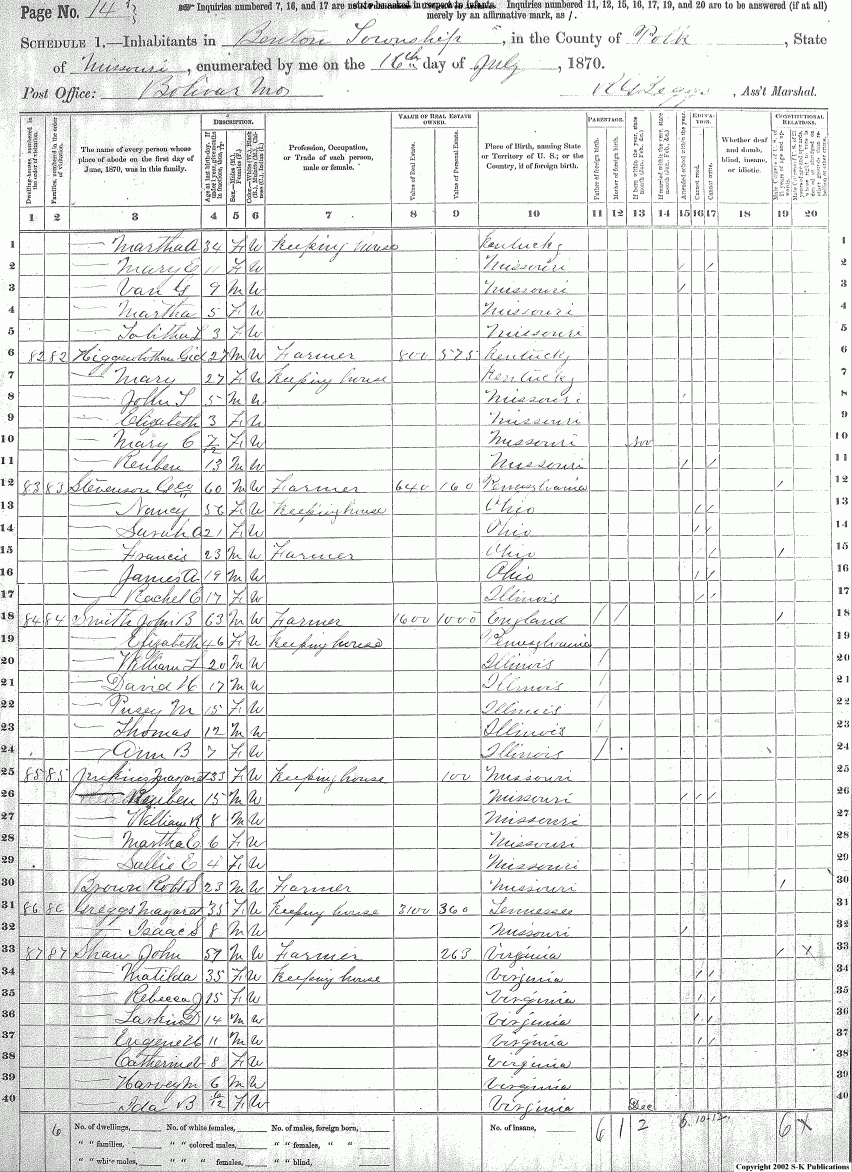 Page No. 14
Inquiries numbered 7, 16, and 17 are not to be asked in respect to infants. Inquiries numbered 11, 12, 15, 16, 17, 19, and 20 are to be answered (if at all)
merely by an affirmative mark, as /.
SCHEDULE 1.—Inhabitants in Benton Township, in the County of Polk, State
of Missouri, enumerated by me on the 16th day of July, 1870.
Post Office: Bolivar Mo , Ass't Marshal.
DESCRIPTION. VALUE OF REAL ESTATE OWNED. PARENTAGE. EDUCATION. CONSTITUTIONAL RELATIONS.
Dwelling-houses, numbered in the order of visitation.
Families, numbered in the order of visitation.
The name of every person whose place of abode on the first day of June, 1870, was in this family.
Profession, Occupation, or Trade of each person, male or female.
Value of Real Estate.
Value of Personal Estate.
Place of Birth, naming State or Territory of U. S.; or the Country, if of foreign birth.
Father of foreign birth.
Mother of foreign birth.
Attended school within the year.
Cannot read.
Cannot write.
Whether deaf and dumb, blind, insane, or idiotic.
1 2 3 4 5 6 7 8 9 10 11 12 13 14 15 16 17 18 19 20
1 — Martha A 34 F W Keeping house Kentucky 1
2 — Mary E 11 F W Missouri / / 2
3 — Van G 9 M W Missouri / 3
4 — Martha 5 F W Missouri 4
5 — Tabitha L 3 F W Missouri 5
6 82 82 Higgenbotham Gid 27 M W Farmer 800 575 Kentucky 6
7 — Mary 27 F W Keeping house Kentucky 7
8 — John T 5 M W Missouri / 8
9 — Elizabeth 3 F W Missouri 9
10 — Mary C 7/12 F W Missouri Nov 10
11 — Reuben 13 M W Missouri / / 11
12 83 83 Stevenson Geo 60 M W Farmer 640 160 Pennsylvania / 12
13 — Nancy 56 F W Keeping house Ohio / / 13
14 — Sarah A 21 F W Ohio / / 14
15 — Francis 23 M W Farmer Ohio / / 15
16 — James A 19 M W Ohio / / 16
17 — Rachel E 17 F W Illinois / / 17
18 84 84 Smith John B 63 M W Farmer 1600 1000 England / / / 18
19 — Elizabeth 46 F W Keeping house Pennsylvania 19
20 — William L 20 M W Illinois / 20
21 — David H 17 M W Illinois / 21
22 — Pusey M 15 F W Illinois / 22
23 — Thomas 12 M W Illinois / 23
24 — Ann B 7 F W Illinois / 24
25 85 85 Jenkins Margaret 33 F W Keeping house 100 Missouri 25
26 — Reuben 15 M W Missouri / / / 26
27 — William R 8 M W Missouri 27
28 — Martha E 6 F W Missouri 28
29 — Sallie E 4 F W Missouri 29
30 Brown Robt S 23 M W Farmer Missouri / 30
31 86 86 Greggs Margaret 35 F W Keeping house 3100 360 Tennessee 31
32 — Isaac S 8 M W Missouri / 32
33 87 87 Shaw John 57 M W Farmer 263 Virginia / X 33
34 — Matilda 35 F W Keeping house Virginia / / 34
35 — Rebecca J 15 F W Virginia / / 35
36 — Larkin D 14 M W Virginia / / 36
37 — Eugene H 11 M W Virginia / / 37
38 — Catherine 8 F W Virginia 38
39 — Harvey M 6 M W Virginia 39
40 — Ida B 6/12 F W Virginia Dec 40
6 No. of dwellings, No. of white females, No. of males, foreign born, No. of insane, 6 1 2 6 10-12 6 X
" " families, " " colored males, " " females, " "
" " white males, " " females, " " blind,
Copyright 2002 S-K Publications